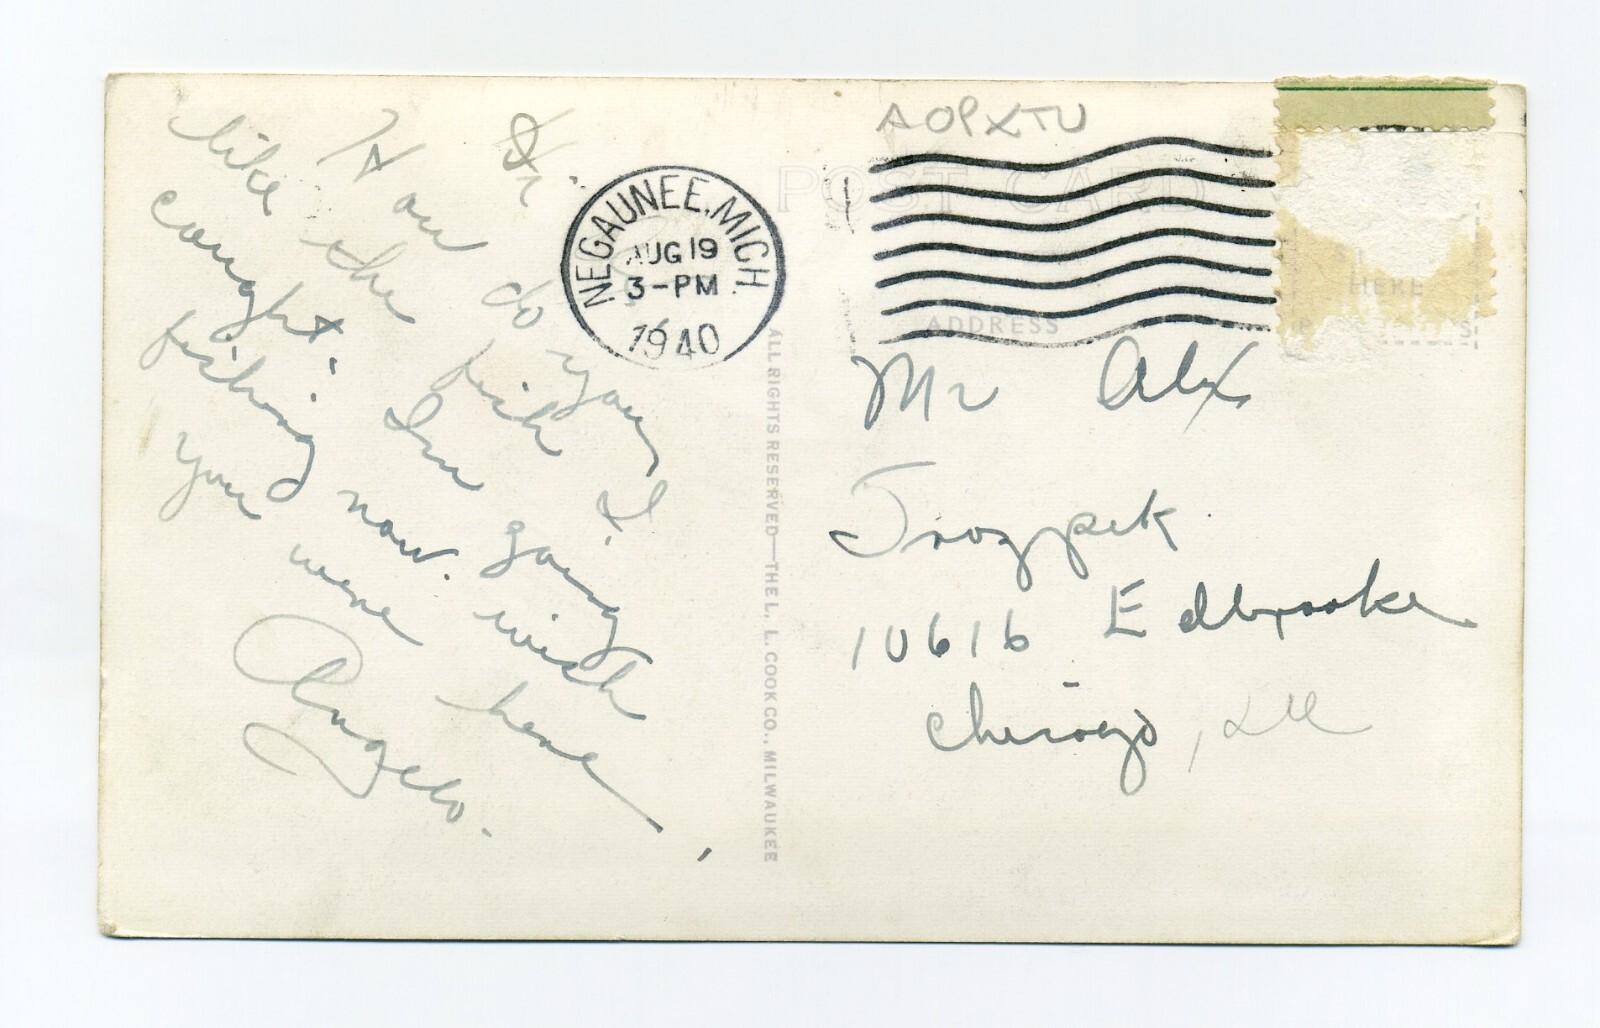 AOPXTU
POST CARD
NEGAUNEE, MICH.
AUG 19
3-PM
1940
ADDRESS
HERE
Hi.
How do you
like the fish I
caught. Im going
fishing now. wish
you were here,
Angelo.
ALL RIGHTS RESERVED—THE L. L. COOK CO., MILWAUKEE
Mr Alex
10616 Edbrooke
Chicago, Ill